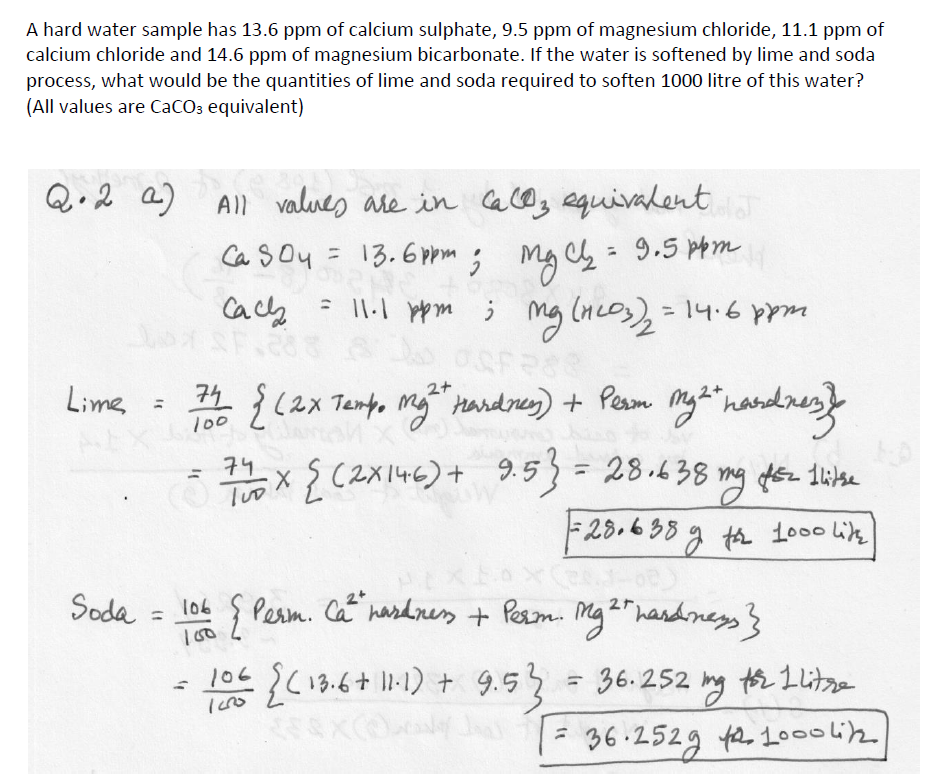 A hard water sample has 13.6 ppm of calcium sulphate, 9.5 ppm of magnesium chloride, 11.1 ppm of
calcium chloride and 14.6 ppm of magnesium bicarbonate. If the water is softened by lime and soda
process, what would be the quantities of lime and soda required to soften 1000 litre of this water?
(All values are CaCO₃ equivalent)
Q.2 a) All values are in CaCO₃ equivalent
CaSO₄ = 13.6 ppm ; MgCl₂ = 9.5 ppm
CaCl₂ = 11.1 ppm ; Mg(HCO₃)₂ = 14.6 ppm
Lime = 74/100 {(2x Temp. Mg²⁺ Hardness) + Perm Mg²⁺ hardness}
= 74/100 x {(2x14.6) + 9.5} = 28.638 mg for 1 litre
= 28.638 g for 1000 litr
Soda = 106/100 {Perm. Ca²⁺ hardness + Perm. Mg²⁺ hardness}
= 106/100 {(13.6 + 11.1) + 9.5} = 36.252 mg for 1 litre
= 36.252g for 1000 litr